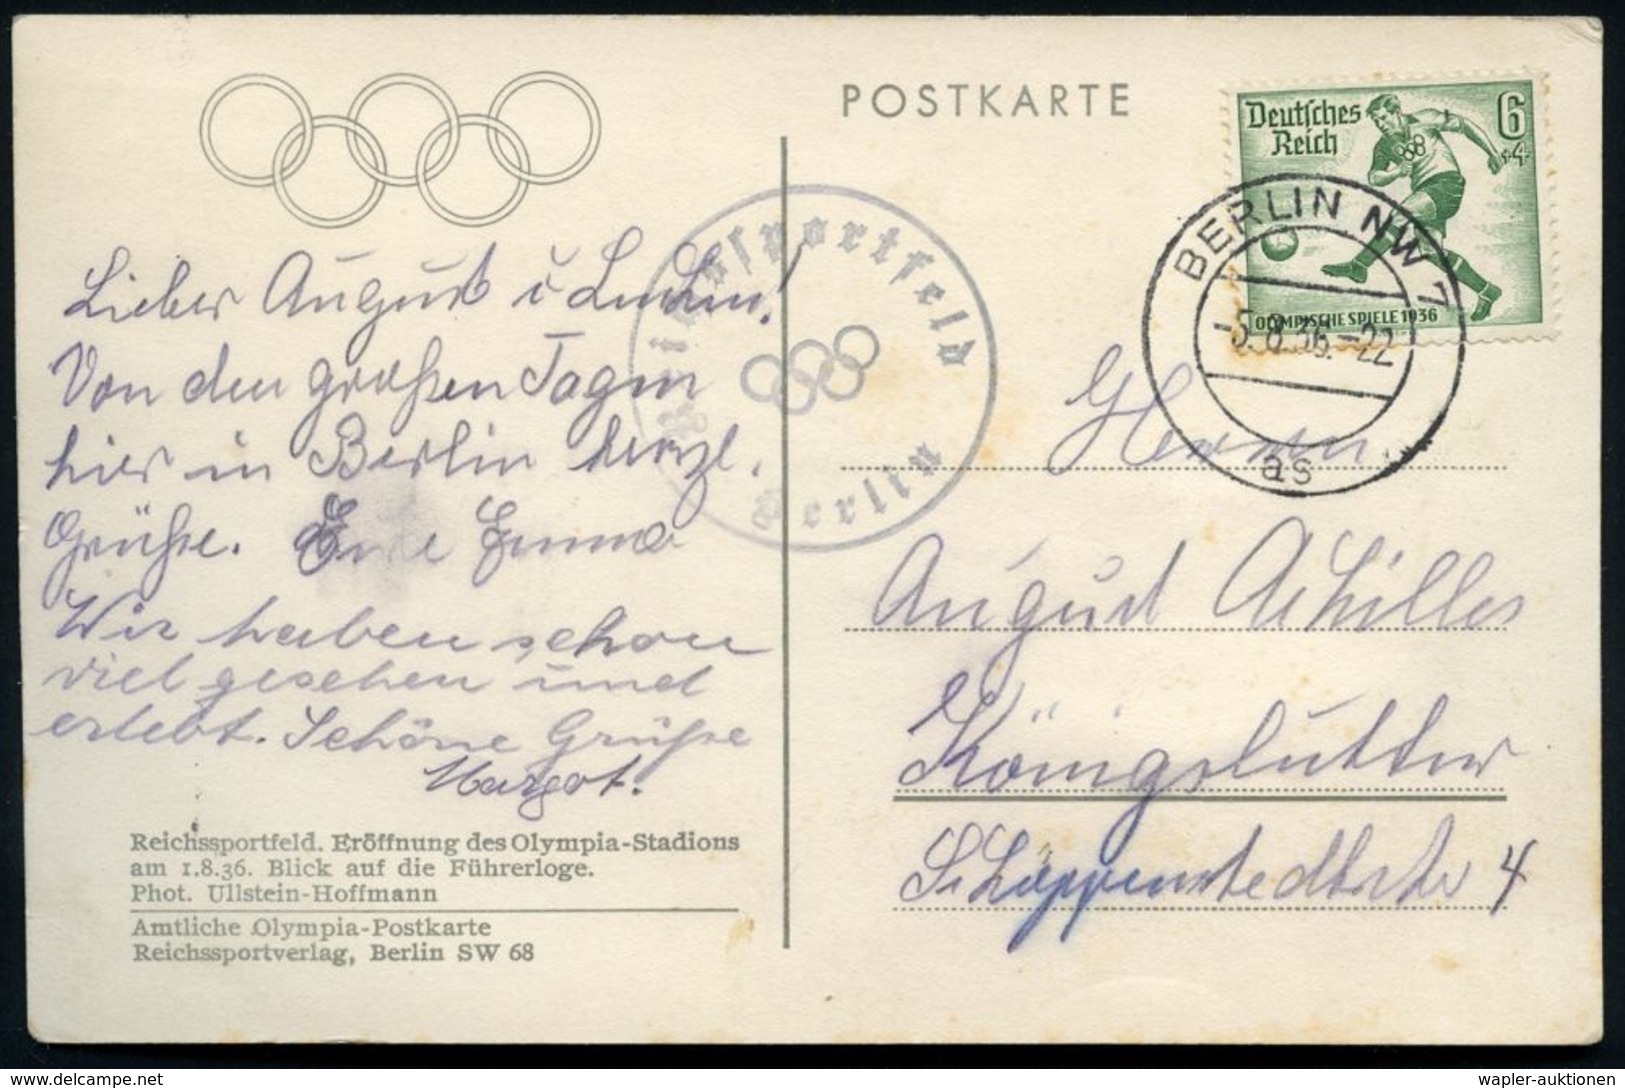 POSTKARTE
Deutsches
Reich
6
+4
OLYMPISCHE SPIELE 1936
BERLIN NW 7
-5.8.36.-22
as
Reichssportfeld
Berlin
Lieber August u
Von den großen Tagen
hier in Berlin herzl.
Grüße. Eure Emma
Wir haben schon
viel gesehen und
erlebt. Schöne Grüße
Margot.
Reichssportfeld. Eröffnung des Olympia-Stadions
am 1.8.36. Blick auf die Führerloge.
Phot. Ullstein-Hoffmann
Amtliche Olympia-Postkarte
Reichssportverlag, Berlin SW 68
Herrn
August Achilles
Königslutter
4
wapler-auktionen
delcampe.net